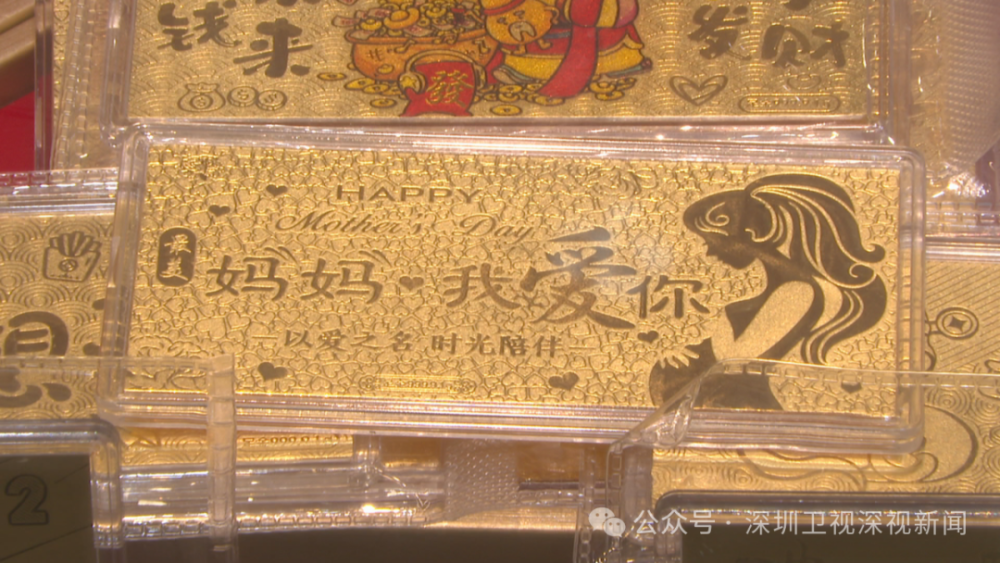 钱
来
發
发
财
HAPPY
Mother's Day
最美
妈妈 我爱你
以爱之名 时光陪伴
2
公众号·深圳卫视深视新闻